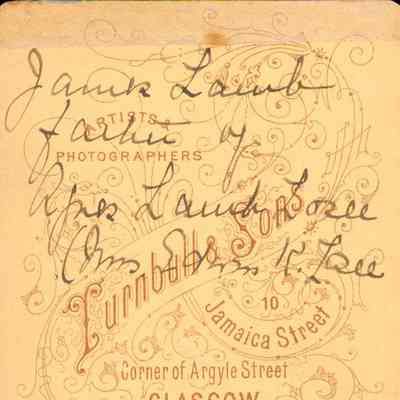 James Lamb
ARTISTS &
father of
PHOTOGRAPHERS
Agnes Lamb Losee
Turnbull & Sons
(Mrs Edwin K. Losee
10
Jamaica Street
Corner of Argyle Street
GLASGOW